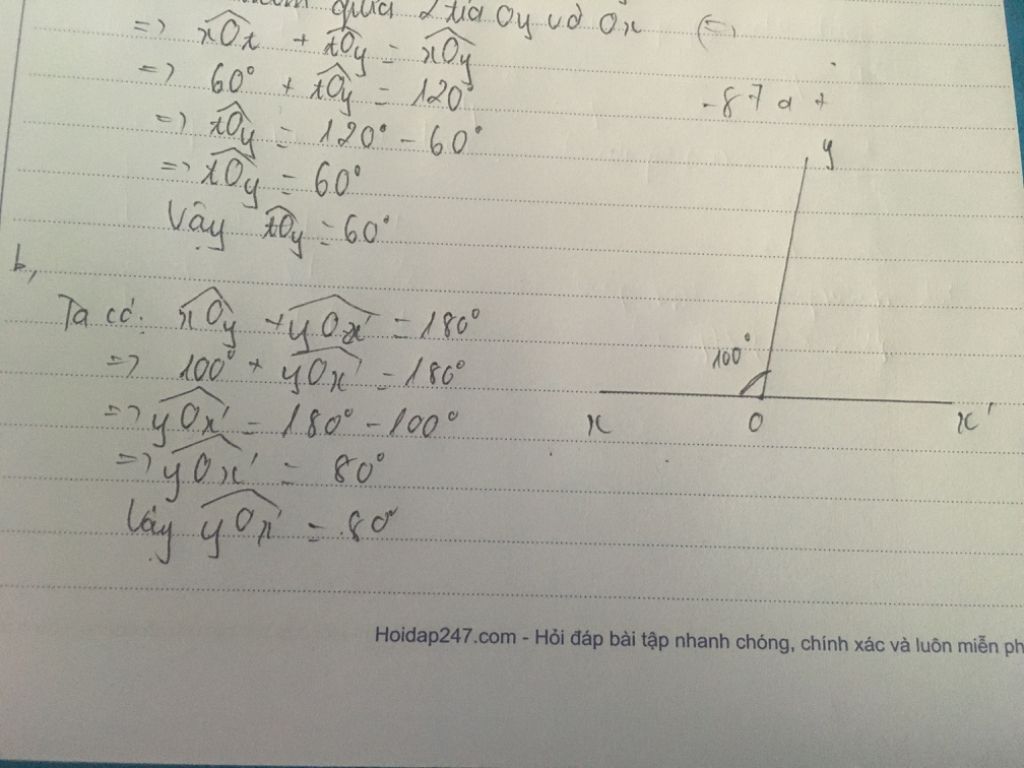 giữa 2 tia Oy và Ox
=> xOt + tOy = xOy
=> 60° + tOy = 120
=> tOy = 120° - 60°
=> tOy = 60°
Vậy tOy = 60°
b,
Ta có: xOy + yOx' = 180°
=> 100° + yOx' = 180°
=> yOx' = 180° - 100°
=> yOx' = 80°
Vậy yOx' = 80°
-87a +
y
100°
x O x'
Hoidap247.com - Hỏi đáp bài tập nhanh chóng, chính xác và luôn miễn ph